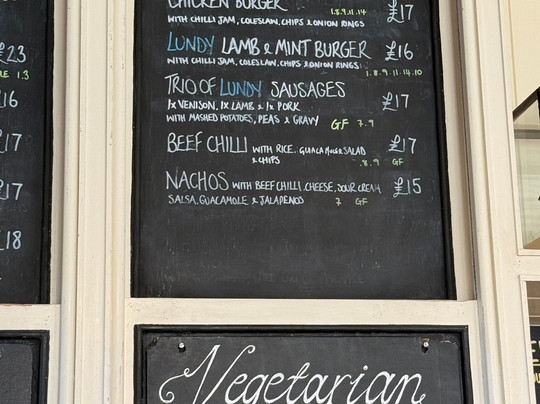 £23
1.3
£16
£17
£17
£18
CHICKEN BURGER £17
1.8.9.11.14
WITH CHILLI JAM, COLESLAW, CHIPS & ONION RINGS
LUNDY LAMB & MINT BURGER £16
WITH CHILLI JAM, COLESLAW, CHIPS & ONION RINGS
1.8.9.11.14.10
TRIO OF LUNDY SAUSAGES £17
1x VENISON, 1x LAMB & 1x PORK
WITH MASHED POTATOES, PEAS & GRAVY GF 7.9
BEEF CHILLI WITH RICE, GUACAMOLE & SALAD £17
& CHIPS .8.9 GF
NACHOS WITH BEEF CHILLI, CHEESE, SOUR CREAM £15
SALSA, GUACAMOLE & JALAPENOS 7 GF
Vegetarian